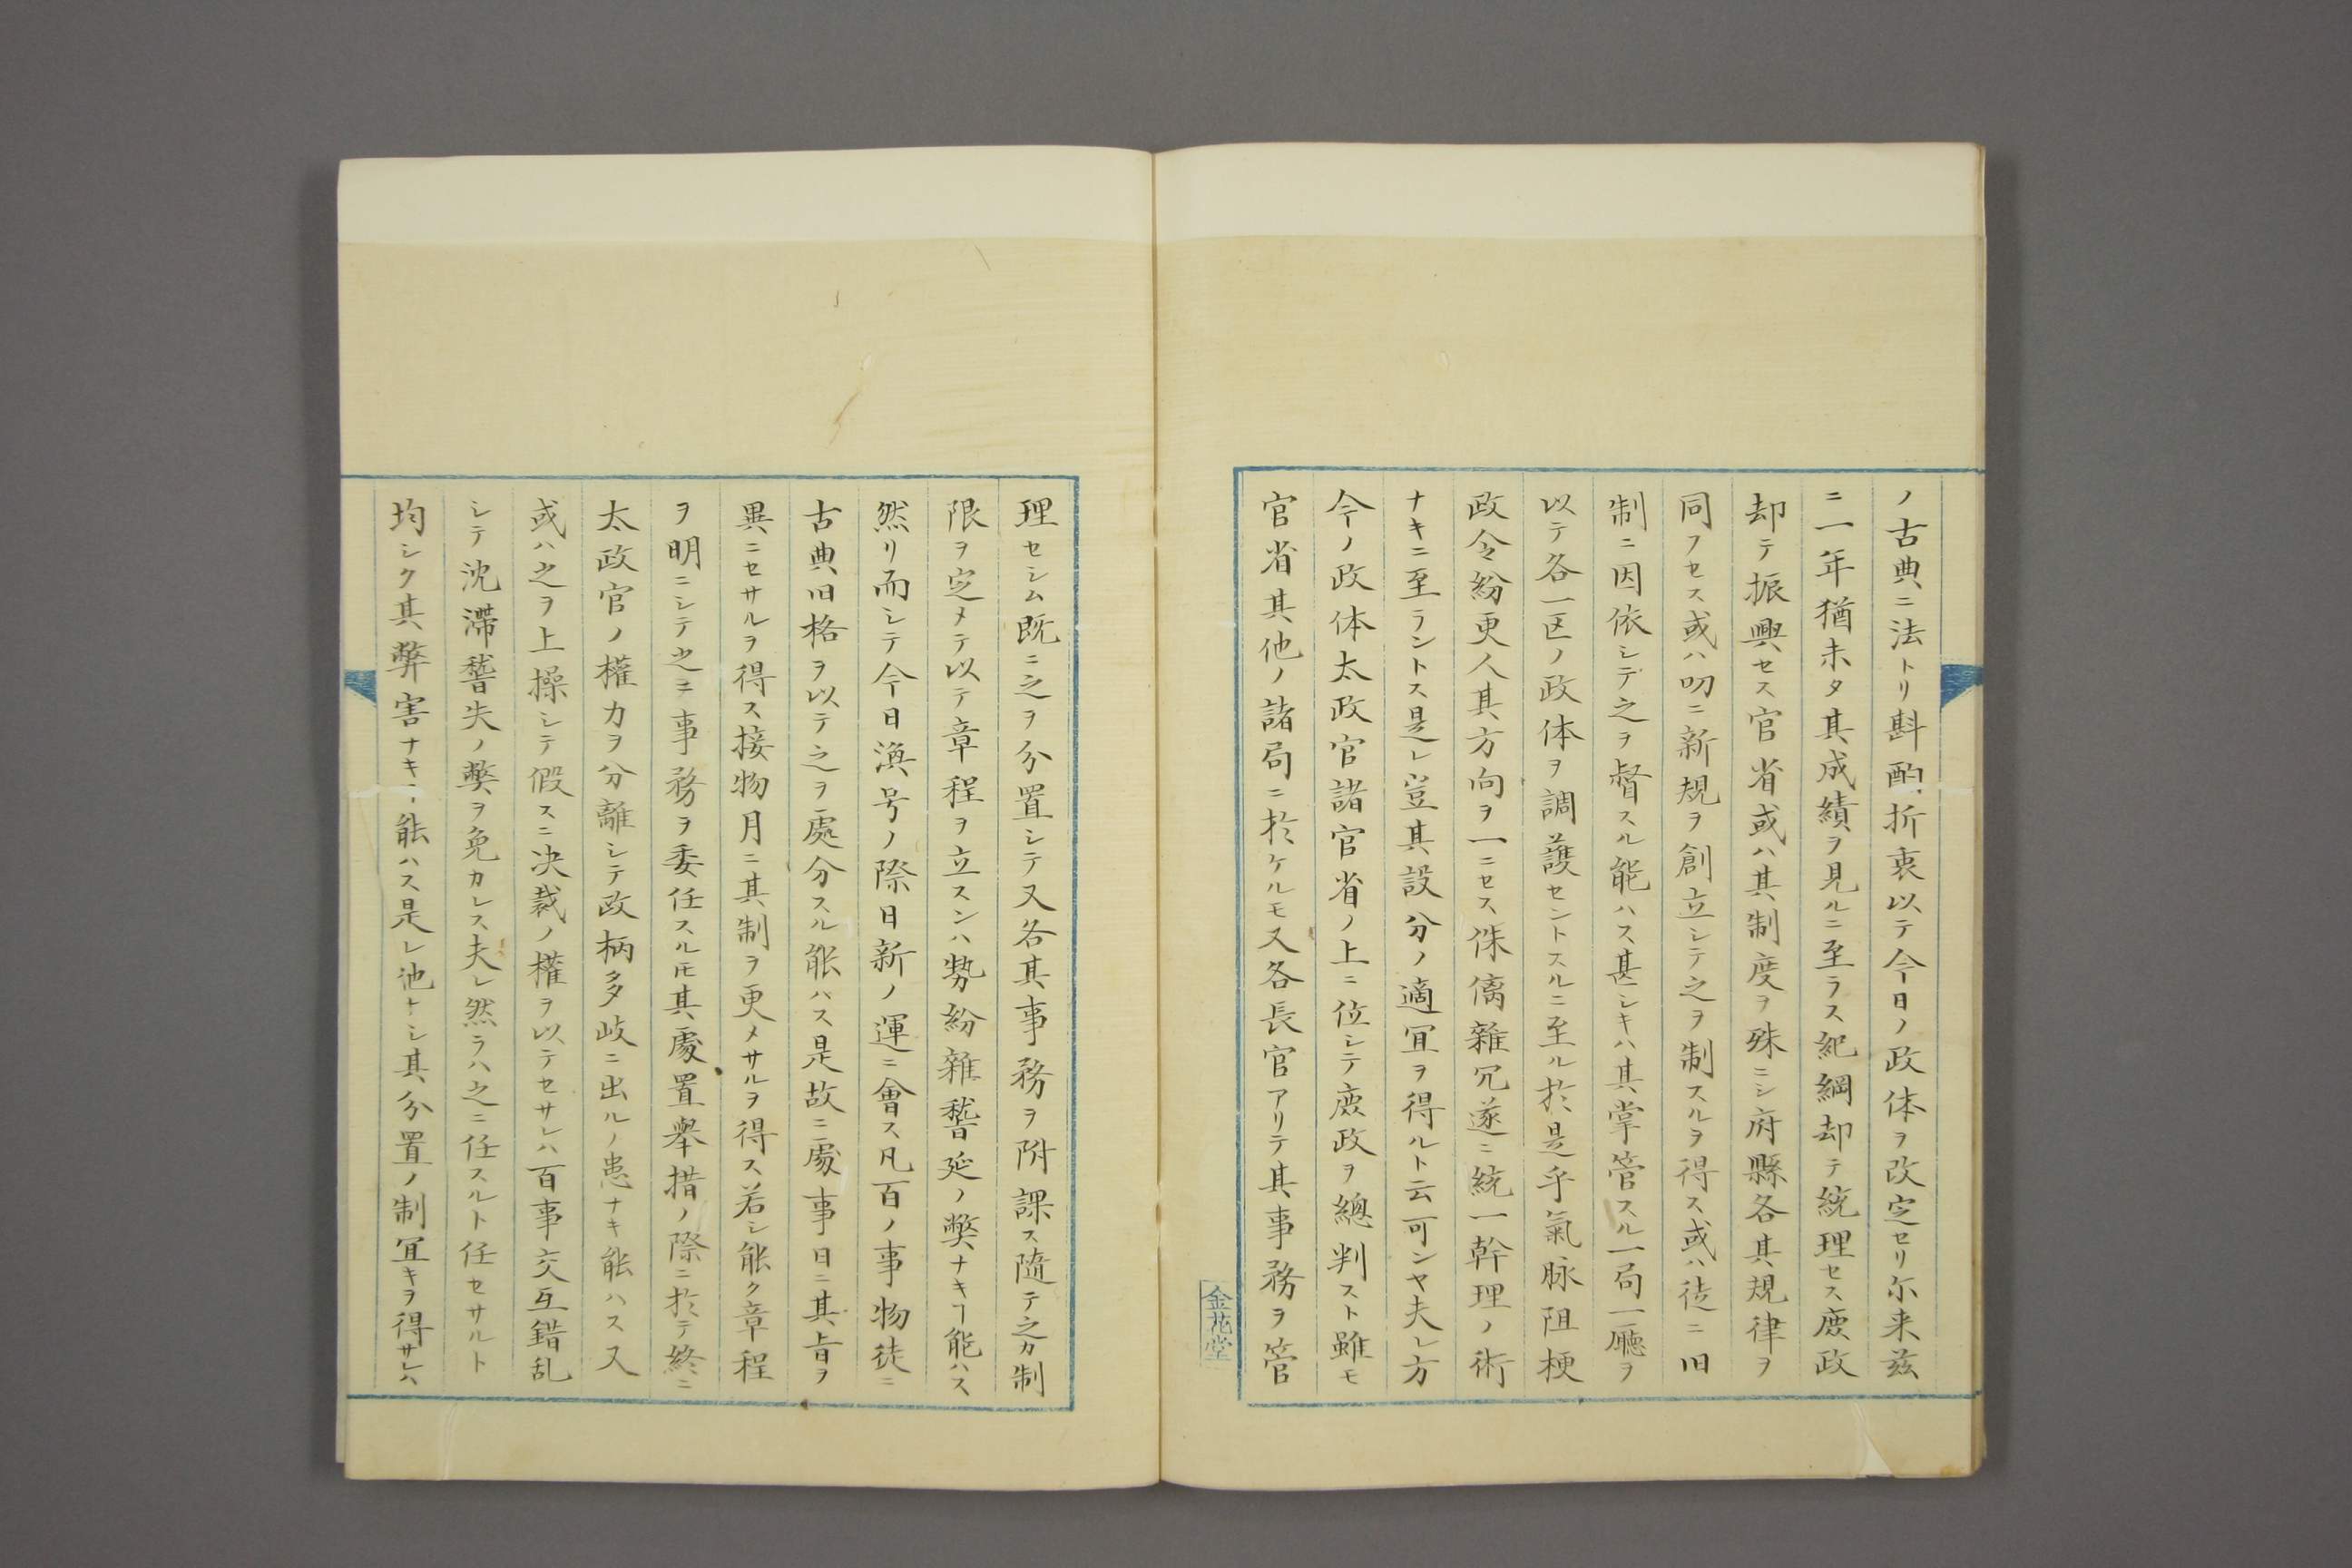 ノ古典ニ法トリ斟酌折衷以テ今日ノ政体ヲ改定セリ尓来茲
ニ一年猶未タ其成績ヲ見ルニ至ラス紀綱却テ統理セス庶政
却テ振興セス官省或ハ其制度ヲ殊ニシ府縣各其規律ヲ
同フセス或ハ叨ニ新規ヲ創立シテ之ヲ制スルヲ得ス或ハ徒ニ旧
制ニ因依シテ之ヲ督スル能ハス甚シキハ其掌管スル一局一廳ヲ
以テ各一区ノ政体ヲ調護セントスルニ至ル於是乎氣脉阻梗
政令紛更人其方向ヲ一ニセス侏僑雜冗遂ニ統一幹理ノ術
ナキニ至ラントス是レ豈其設分ノ適宜ヲ得ルト云可ンヤ夫レ方
今ノ政体太政官諸官省ノ上ニ位シテ庶政ヲ總判スト雖モ
官省其他ノ諸局ニ於ケルモ又各長官アリテ其事務ヲ管
金花堂
理セシム既ニ之ヲ分置シテ又各其事務ヲ附課ス隨テ之カ制
限ヲ定メテ以テ章程ヲ立スンハ勢紛雜稽延ノ弊ナキヿ能ハス
然リ而シテ今日渙号ノ際日新ノ運ニ會ス凡百ノ事物徒ニ
古典旧格ヲ以テ之ヲ處分スル能ハス是故ニ處事日ニ其旨ヲ
異ニセサルヲ得ス接物月ニ其制ヲ更メサルヲ得ス若シ能ク章程
ヲ明ニシテ之ニ事務ヲ委任スルモ其處置舉措ノ際ニ於テ終ニ
太政官ノ權力ヲ分離シテ政柄多岐ニ出ルノ患ナキ能ハス又
或ハ之ヲ上操シテ假スニ决裁ノ權ヲ以テセサレハ百事交互錯乱
シテ沈滯稽失ノ弊ヲ免カレス夫レ然ラハ之ニ任スルト任セサルト
均シク其弊害ナキヿ能ハス是レ他ナシ其分置ノ制宜キヲ得サレハ